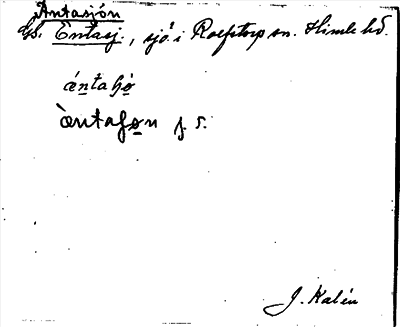 Äntasjön
Gs. Entasj., sjö i Rolfstorp sn. Himle hd.
æ̀ntaɧø̀
æ̀ntaɧøn f. s.
J. Kalén